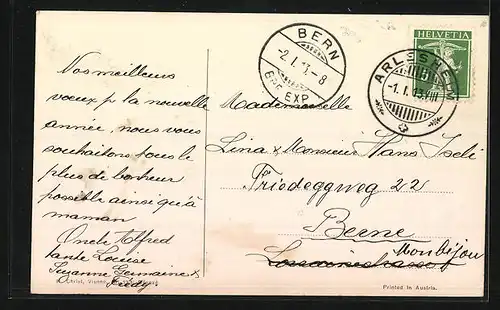 BERN
-2.I.1 -8
BRF. EXP.
HELVETIA
5
ARLESHEIM
-1.I.13.VIII
Nos meilleurs
voeux p. la nouvelle
année, nous vous
souhaitons tous le
plus de bonheur
possible ainsi qu'à
maman
Oncle Alfred
tante Louise
Suzanne Germaine &
Fredy
Mademoiselle
Lina & Monsieur Hans Iseli
Friedeggweg 22
Berne
Monbijou
Lorrainestrasse
Vienne
Printed in Austria.